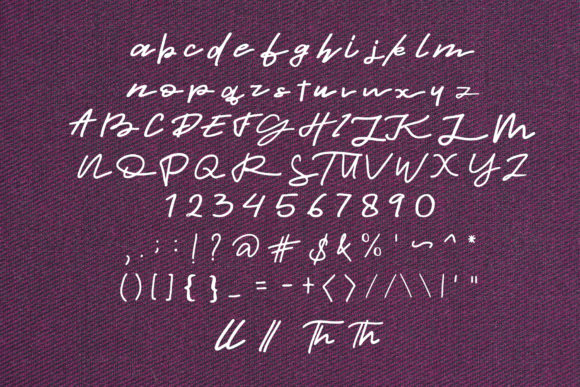 a b c d e f g h i j k l m
n o p q r s t u v w x y z
A B C D E F G H I J K L M
N O P Q R S T U V W X Y Z
1 2 3 4 5 6 7 8 9 0
, . ; : ! ? @ # $ & % ' ~ ^ *
( ) [ ] { } _ = - + < > / / \ \ | ' "
ll ll Th Th